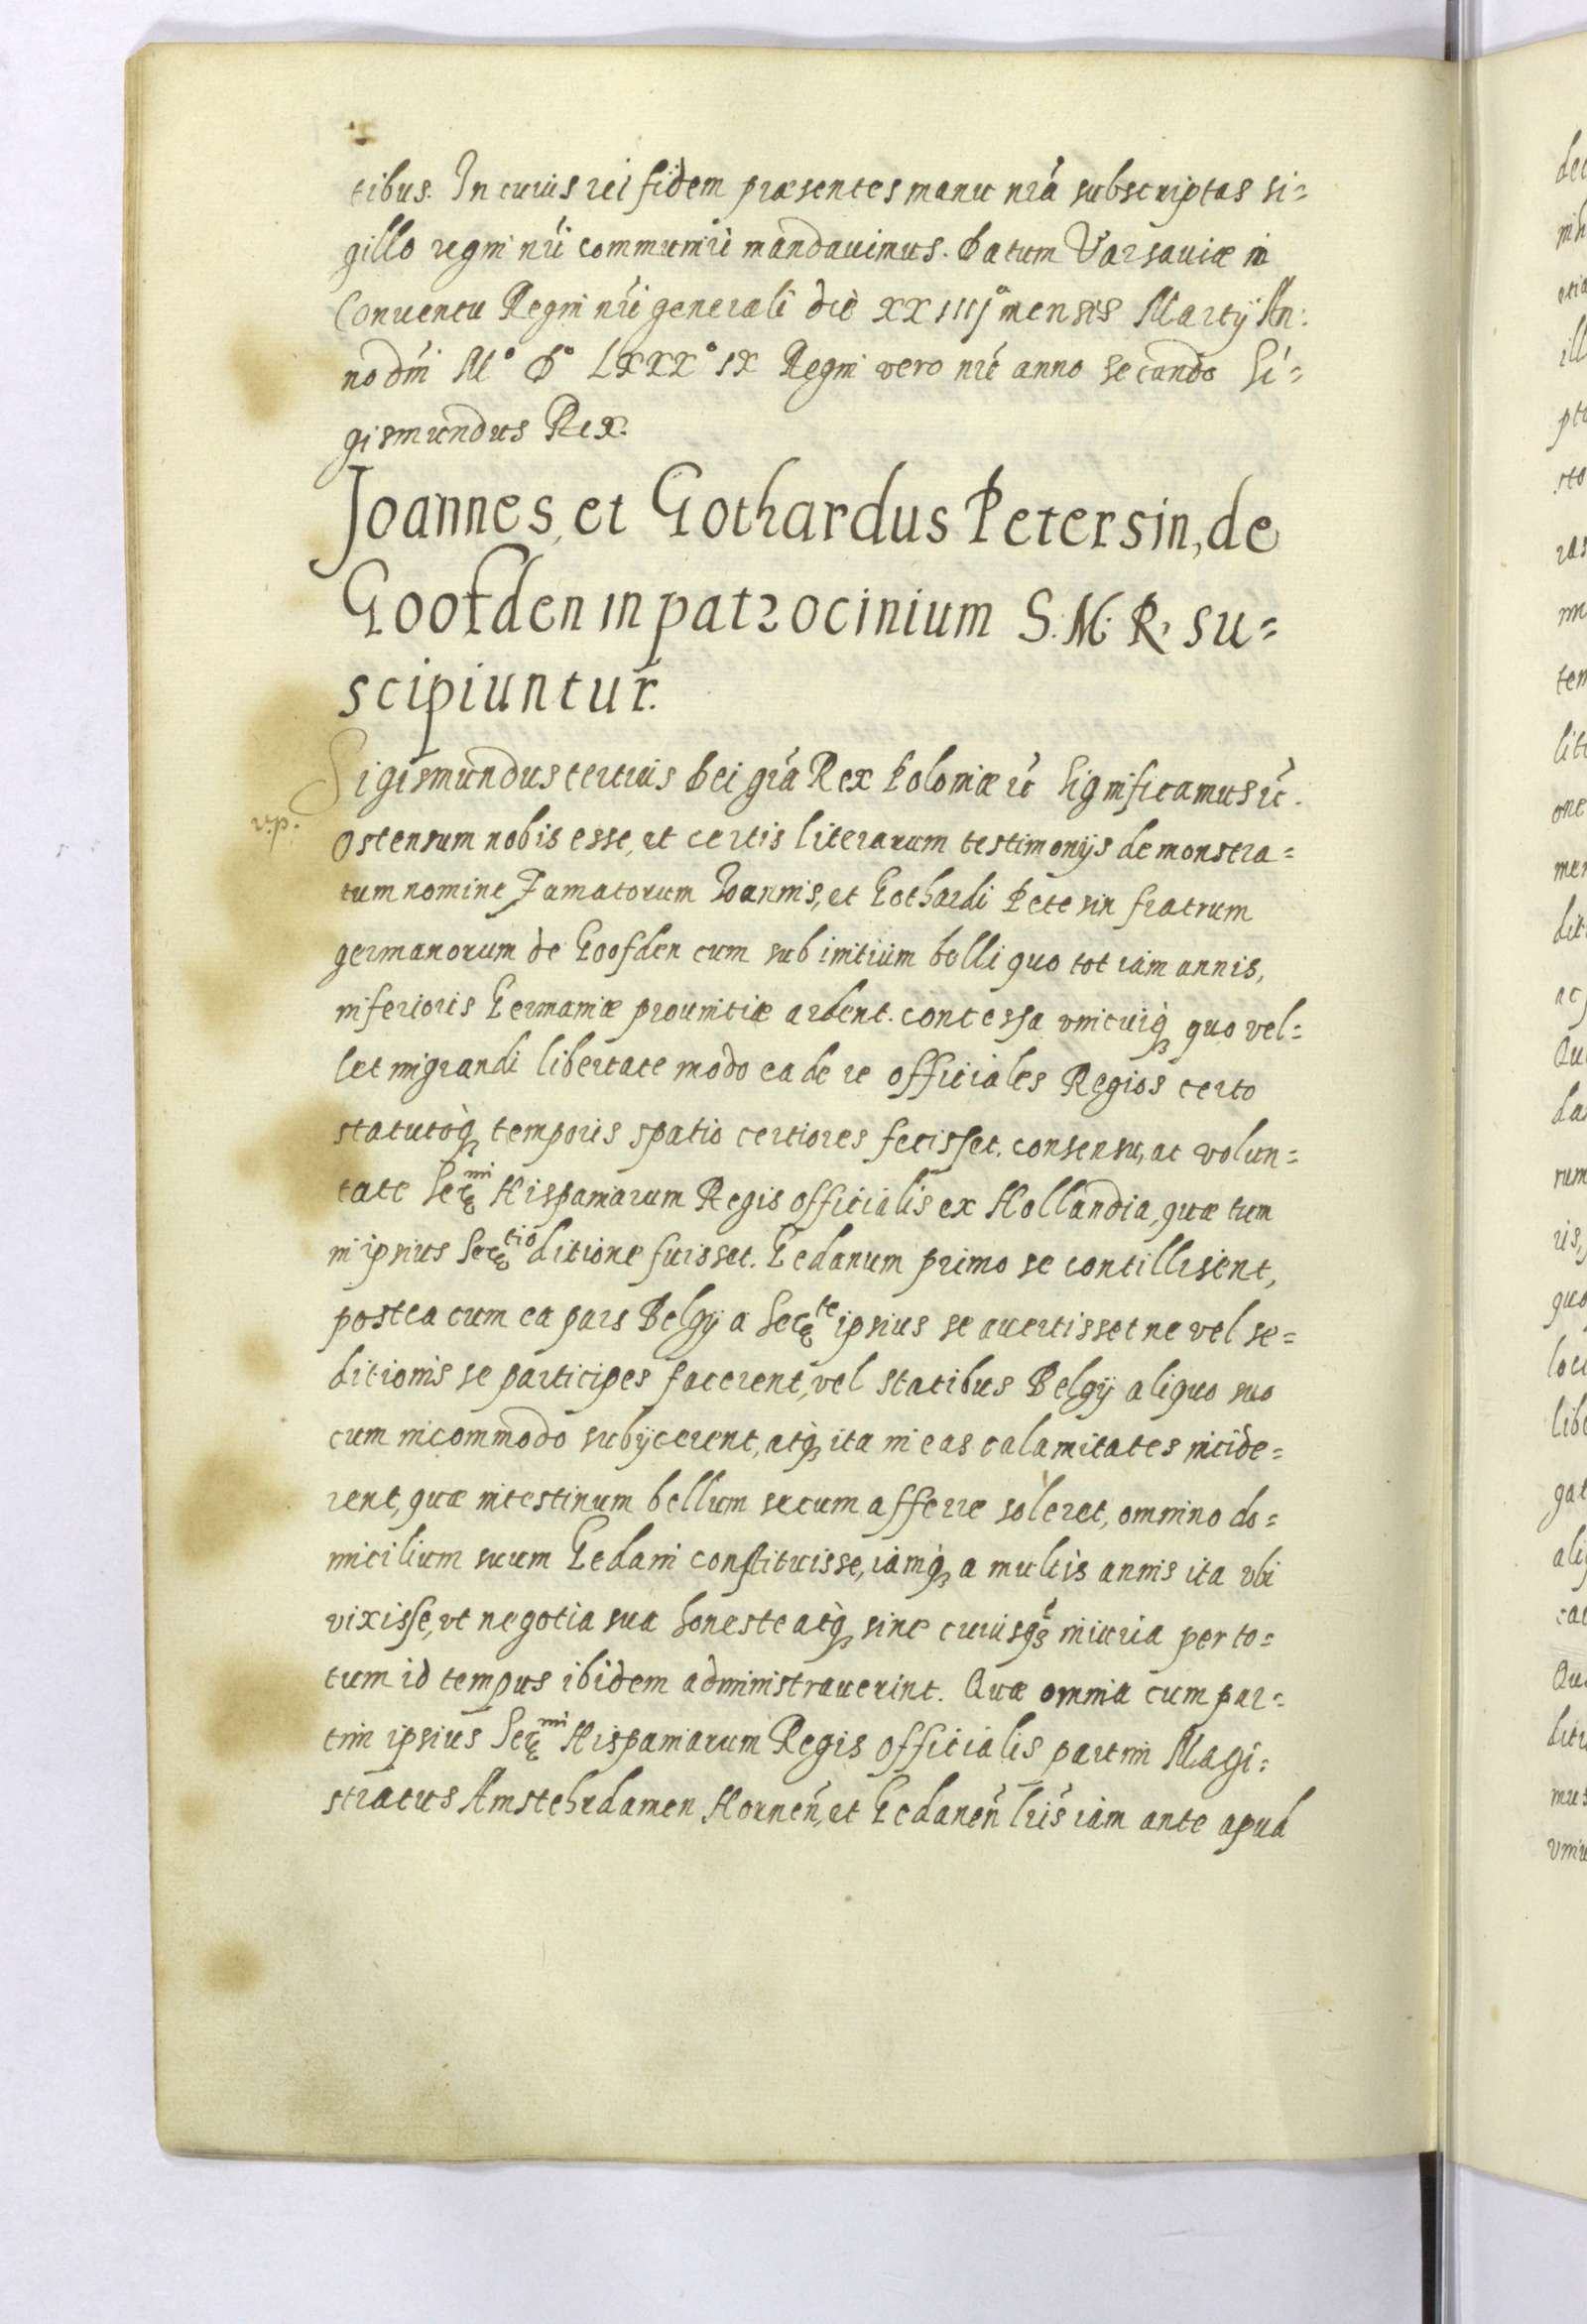 tibus. In cuius rei fidem præsentes manu nrá subscriptas si=
gillo regni nri communiri mandauimus. Datum Varsauiæ in
Conuentu Regni nri generali die XXIIIJ° mensis Martij An:
no dni M° D° LXXX° IX Regni vero nri anno secundo Si=
gismundus Rex.
Joannes, et Gothardus Petersin, de
Goofden in patrocinium S. M. R. su=
scipiuntur.
Sigismundus tertius Dei grá Rex Poloniæ rc Significamus rc.
v.p.
Ostensum nobis esse, et certis literarum testimonijs demonstra=
tum nomine Famatorum Ioannis, et Gothardi Petesin fratrum
germanorum de Goofden cum sub initium belli quo tot iam annis,
inferioris Germaniæ prouintiæ ardent. concessa vnicuiq quo vel=
let migrandi libertate modo ea de re officiales Regios certo
statutoq temporis spatio certiores fecisset. consensu, ac volun=
tate Sermi Hispaniarum Regis officialis ex Hollandia, quæ tum
in ipsius Sertio ditione fuisset. Gedanum primo se contillisent,
postea cum ea pars Belgij a Secte ipsius se auertisset ne vel se=
ditionis se participes facerent, vel statibus Belgij aliquo suo
cum incommodo subijcerent, atq ita in eas calamitates incide=
rent, quæ intestinum bellum secum afferre soleret, omnino do=
micilium suum Gedani constituisse, iamq a multis annis ita vbi
vixisse, vt negotia sua honeste atq sine cuiusq iniuria per to=
tum id tempus ibidem administrauerint. Quæ omnia cum par=
tim ipsius Sermi Hispaniarum Regis officialis partim Magi=
stratus Amstehrdamen Hornen, et Gedanen lris iam ante apud